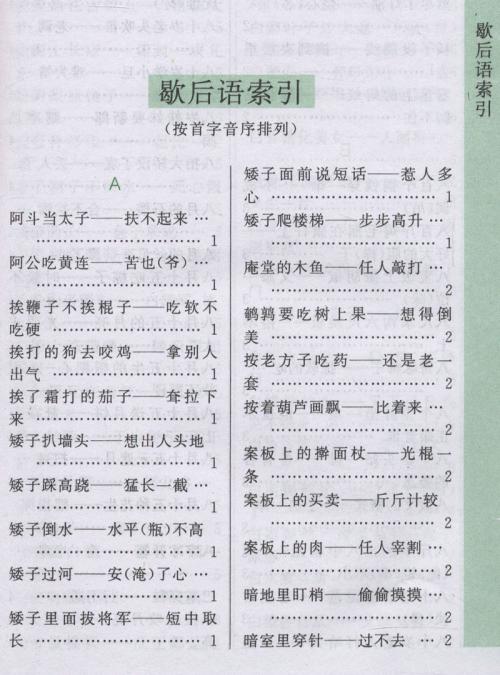 歇后语索引
(按首字音序排列)
A
阿斗当太子——扶不起来 …
………………………… 1
阿公吃黄连——苦也(爷)
………………………… 1
挨鞭子不挨棍子——吃软不
吃硬 …………………… 1
挨打的狗去咬鸡——拿别人
出气 …………………… 1
挨了霜打的茄子——耷拉下
来 ……………………… 1
矮子扒墙头——想出人头地
………………………… 1
矮子踩高跷——猛长一截 …
………………………… 1
矮子倒水——水平(瓶)不高
………………………… 1
矮子过河——安(淹)了心 …
………………………… 1
矮子里面拔将军——短中取
长 ……………………… 1
矮子面前说短话——惹人多
心 ……………………… 1
矮子爬楼梯——步步高升 …
………………………… 1
庵堂的木鱼——任人敲打 …
………………………… 2
鹌鹑要吃树上果——想得倒
美 ……………………… 2
按老方子吃药——还是老一
套 ……………………… 2
按着葫芦画瓢——比着来 …
………………………… 2
案板上的擀面杖——光棍一
条 ……………………… 2
案板上的买卖——斤斤计较
………………………… 2
案板上的肉——任人宰割 …
………………………… 2
暗地里盯梢——偷偷摸摸 …
………………………… 2
暗室里穿针——过不去 … 2
歇后语索引